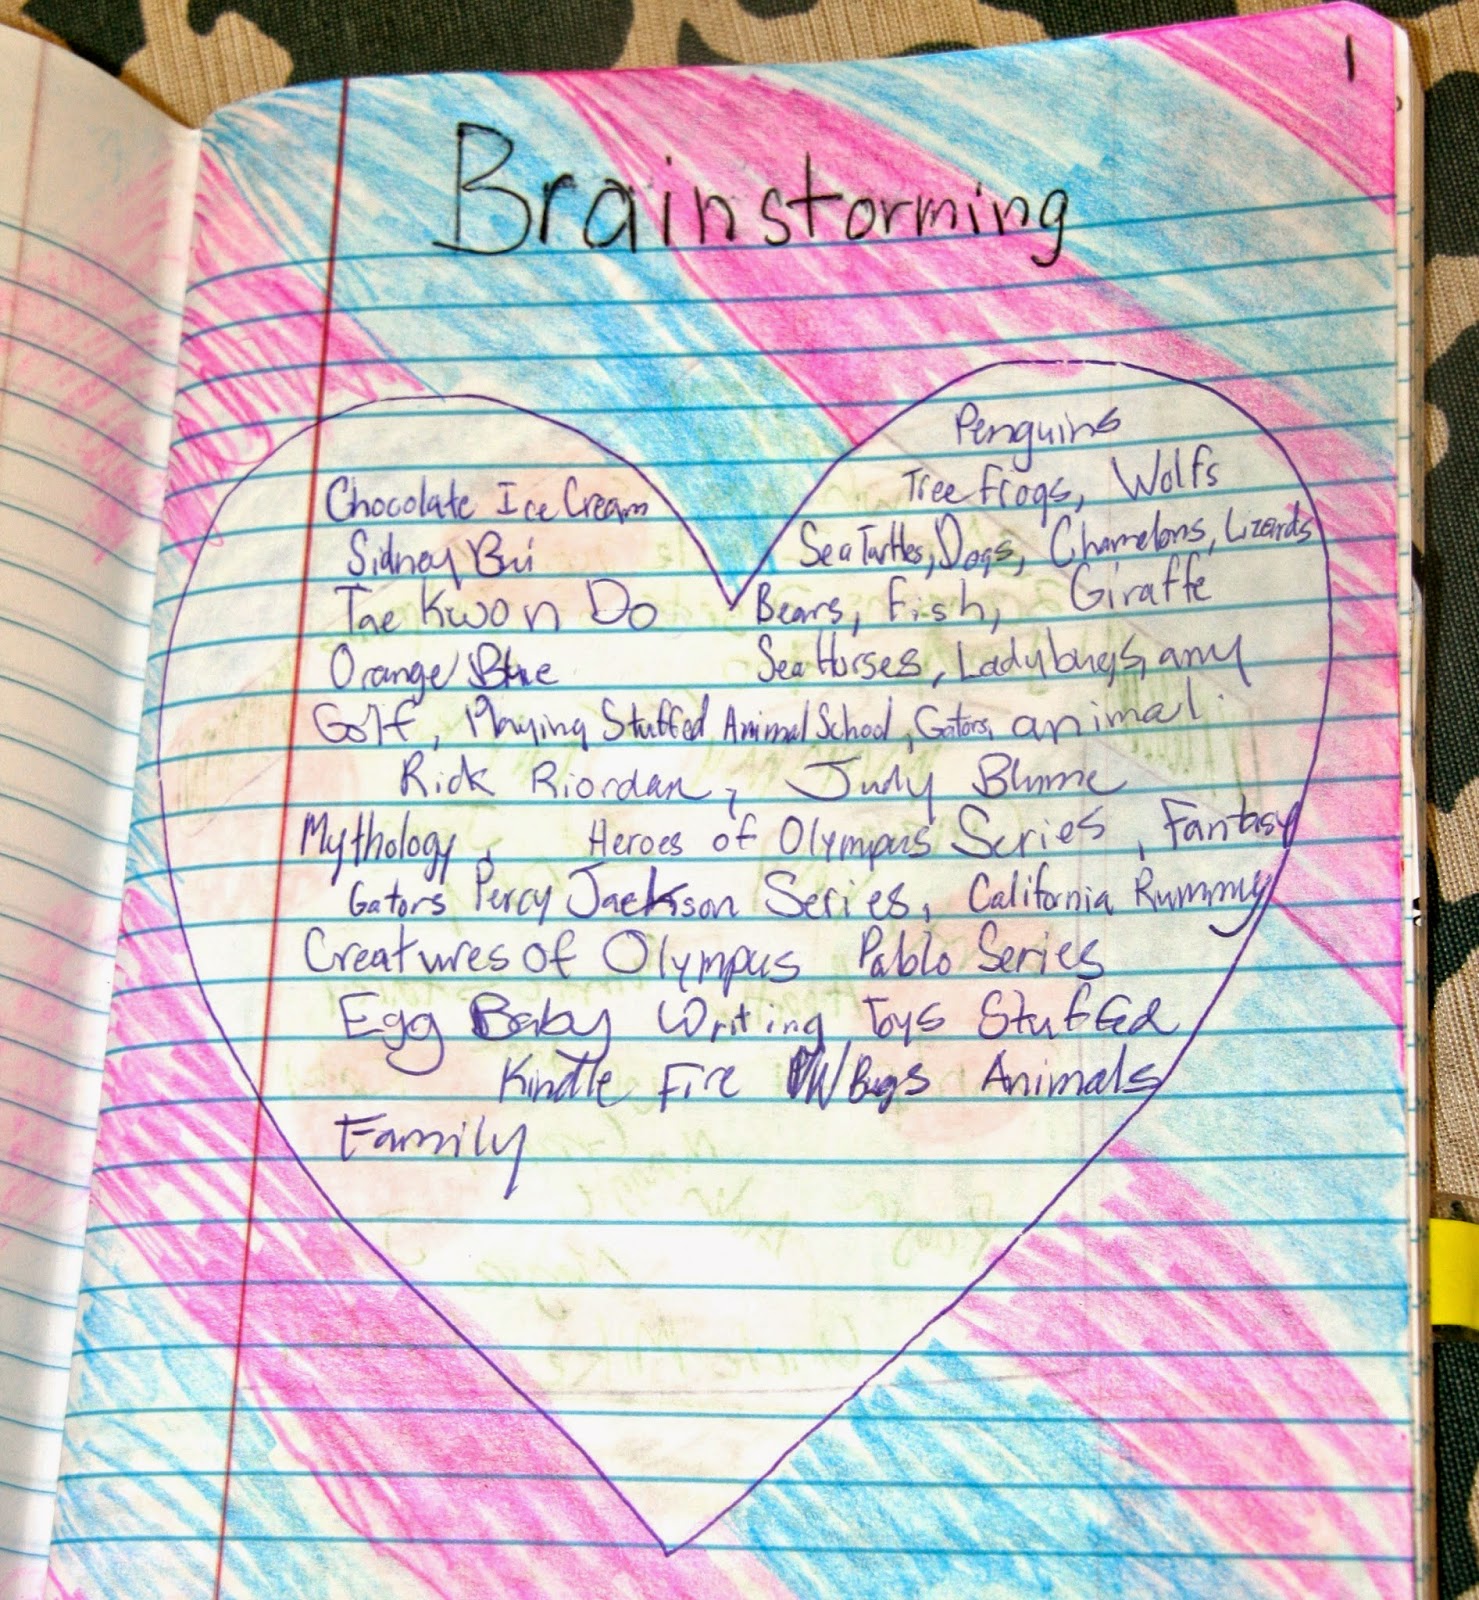 1
Brainstorming
Penguins
Tree frogs, Wolfs
Chocolate Ice Cream
Sea Turtles, Dogs, Chamelons, Lizards
Sidney Bui
Bears, Fish, Giraffe
Tae Kwon Do
Sea Horses, Ladybugs, any
Orange Blue
Golf, Playing Stuffed Animal School, Gators, animal.
Rick Riordan, Judy Blume
Mythology, Heroes of Olympus Series, Fantasy
Gators Percy Jackson Series, California Rummy
Creatures of Olympus Pablo Series
Egg Baby Writing Toys Stuffed
Kindle Fire Bugs Animals
Family